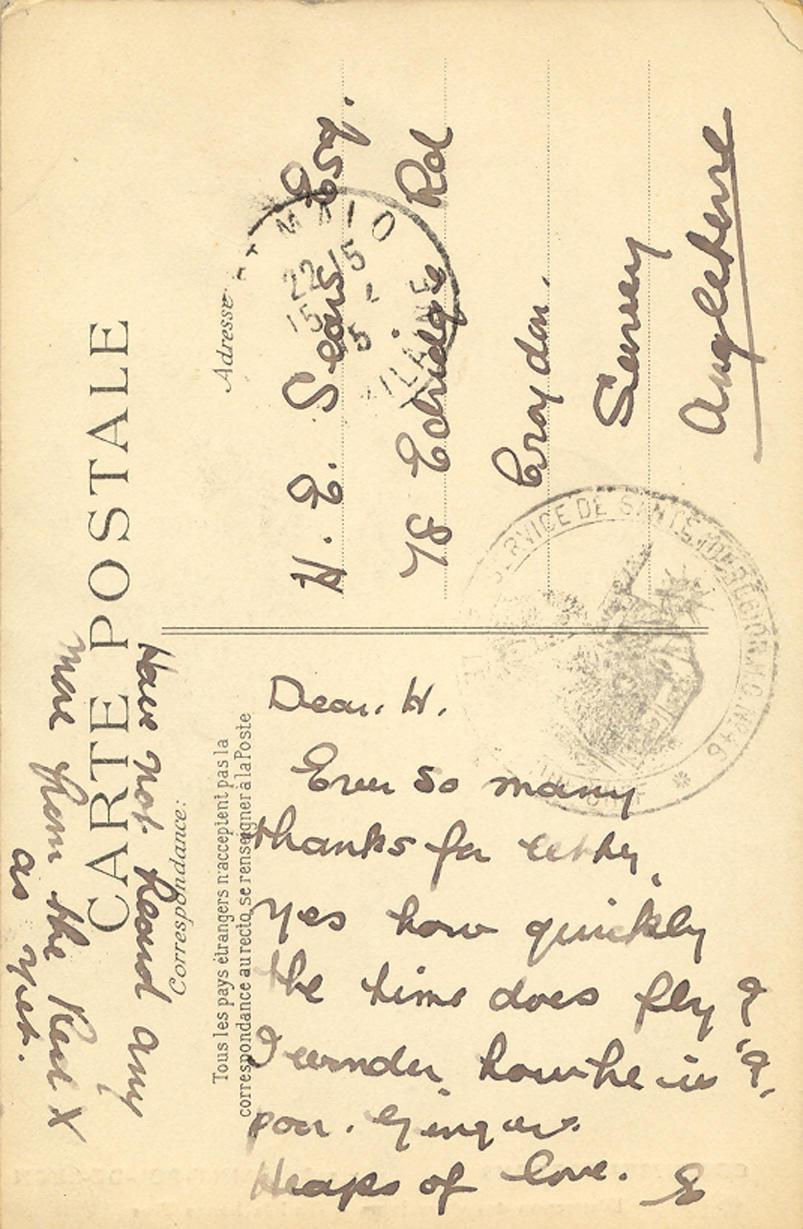 CARTE POSTALE
Correspondance:
Tous les pays étrangers n'acceptent pas la
correspondance au recto, se renseigner à la Poste
Adresse
H. E. Sears Esq.
78 Edridge Rd
Croydon,
Surrey
Angleterre
MALO
22
15 15
5
VILAINE
SERVICE DE SANTÉ
REGION
46
Dear. H.
Ever so many
thanks for letter,
yes how quickly
the time does fly
I wonder how he is
poor. Ginger.
Heaps of love. E
Have not heard any
more from the Red X
as yet.